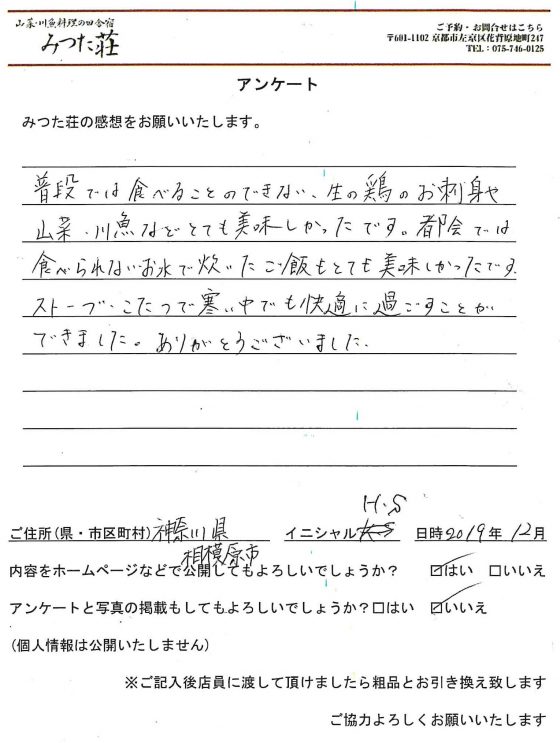 山菜・川魚料理の田舎宿
みつた荘
ご予約・お問合せはこちら
〒601-1102 京都市左京区花背原地町247
TEL：075-746-0125
アンケート
みつた荘の感想をお願いいたします。
普段では食べることのできない、生の鶏のお刺身や
山菜、川魚などとても美味しかったです。都会では
食べられないお水で炊いたご飯もとても美味しかったです。
ストーブ・こたつで寒い中でも快適に過ごすことが
できました。ありがとうございました。
ご住所(県・市区町村) 神奈川県 イニシャル H.S 日時 2019年 12月
相模原市
内容をホームページなどで公開してもよろしいでしょうか？ ☑はい □いいえ
アンケートと写真の掲載もしてもよろしいでしょうか？□はい ☑いいえ
(個人情報は公開いたしません)
※ご記入後店員に渡して頂けましたら粗品とお引き換え致します
ご協力よろしくお願いいたします